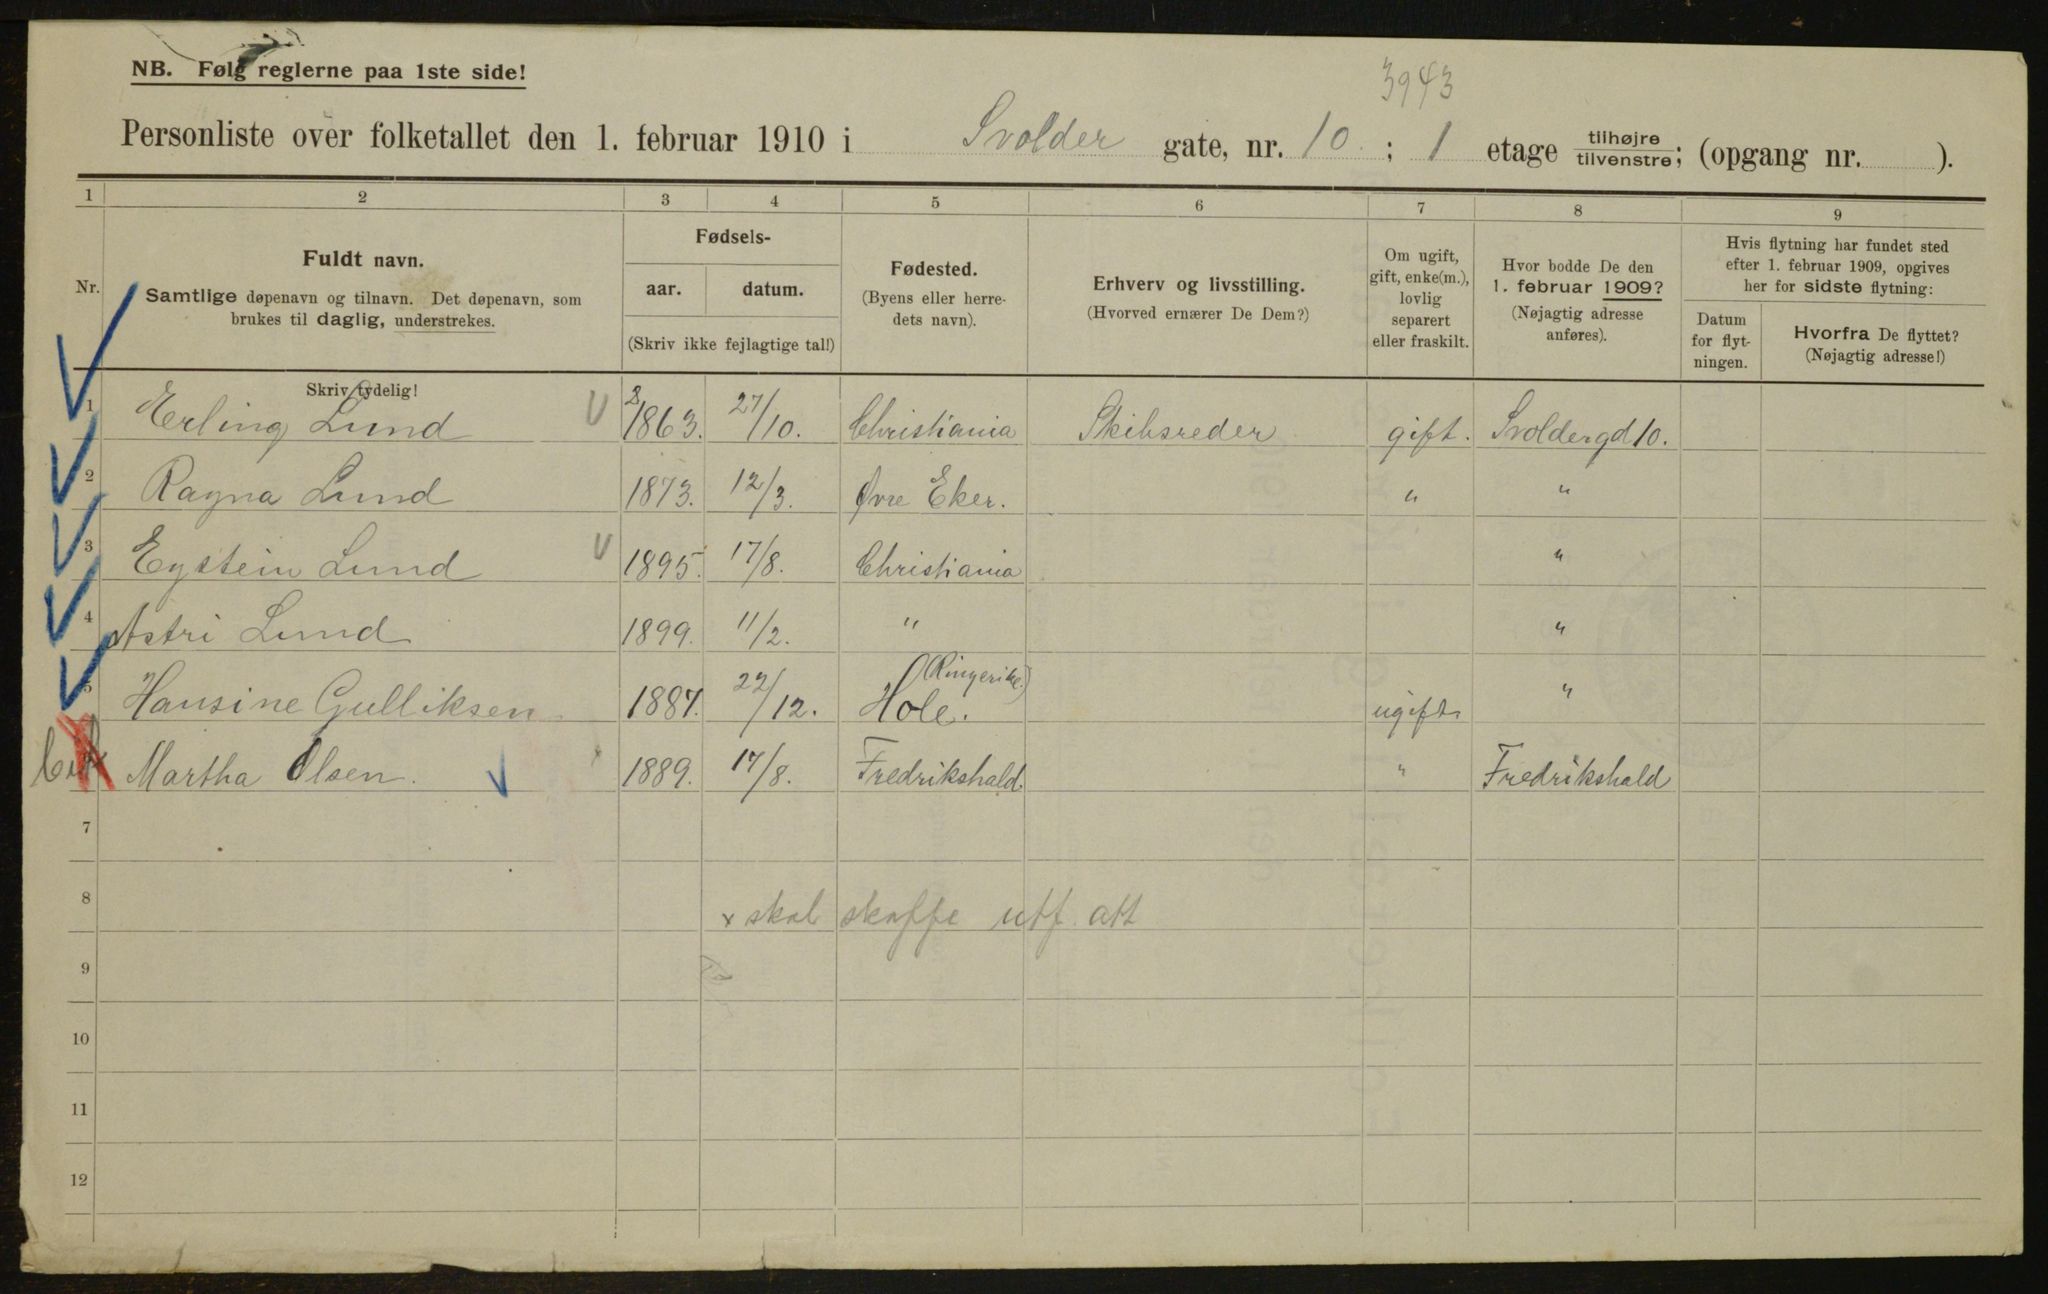 3943
NB. Følg reglerne paa 1ste side!
Personliste over folketallet den 1. februar 1910 i Svolder gate, nr. 10. ; 1 etage tilhøjre tilvenstre; (opgang nr. ).
1 2 3 4 5 6 7 8 9
Nr.
Fuldt navn.
Samtlige døpenavn og tilnavn. Det døpenavn, som
brukes til daglig, understrekes.
Skriv tydelig!
Fødsels-
aar. datum.
(Skriv ikke fejlagtige tal!)
Fødested.
(Byens eller herre-
dets navn).
Erhverv og livsstilling.
(Hvorved ernærer De Dem?)
Om ugift,
gift, enke(m.),
lovlig
separert
eller fraskilt.
Hvor bodde De den
1. februar 1909?
(Nøjagtig adresse
anføres).
Hvis flytning har fundet sted
efter 1. februar 1909, opgives
her for sidste flytning:
Datum
for flyt-
ningen.
Hvorfra De flyttet?
(Nøjagtig adresse!)
1 Erling Lund 1863. 27/10. Christiania Skibsreder gift. Svoldergd 10.
2 Ragna Lund 1873. 12/3. Øvre Eker. " "
3 Eystein Lund 1895. 17/8. Christiania "
4 Astri Lund 1899. 11/2. " "
5 Hansine Gulliksen 1887. 22/12. Hole. (Ringerike.) ugift. "
Martha Olsen. 1889. 17/8. Fredrikshald. " Fredrikshald
7
8 x skal skaffe utf. att
9
10
11
12